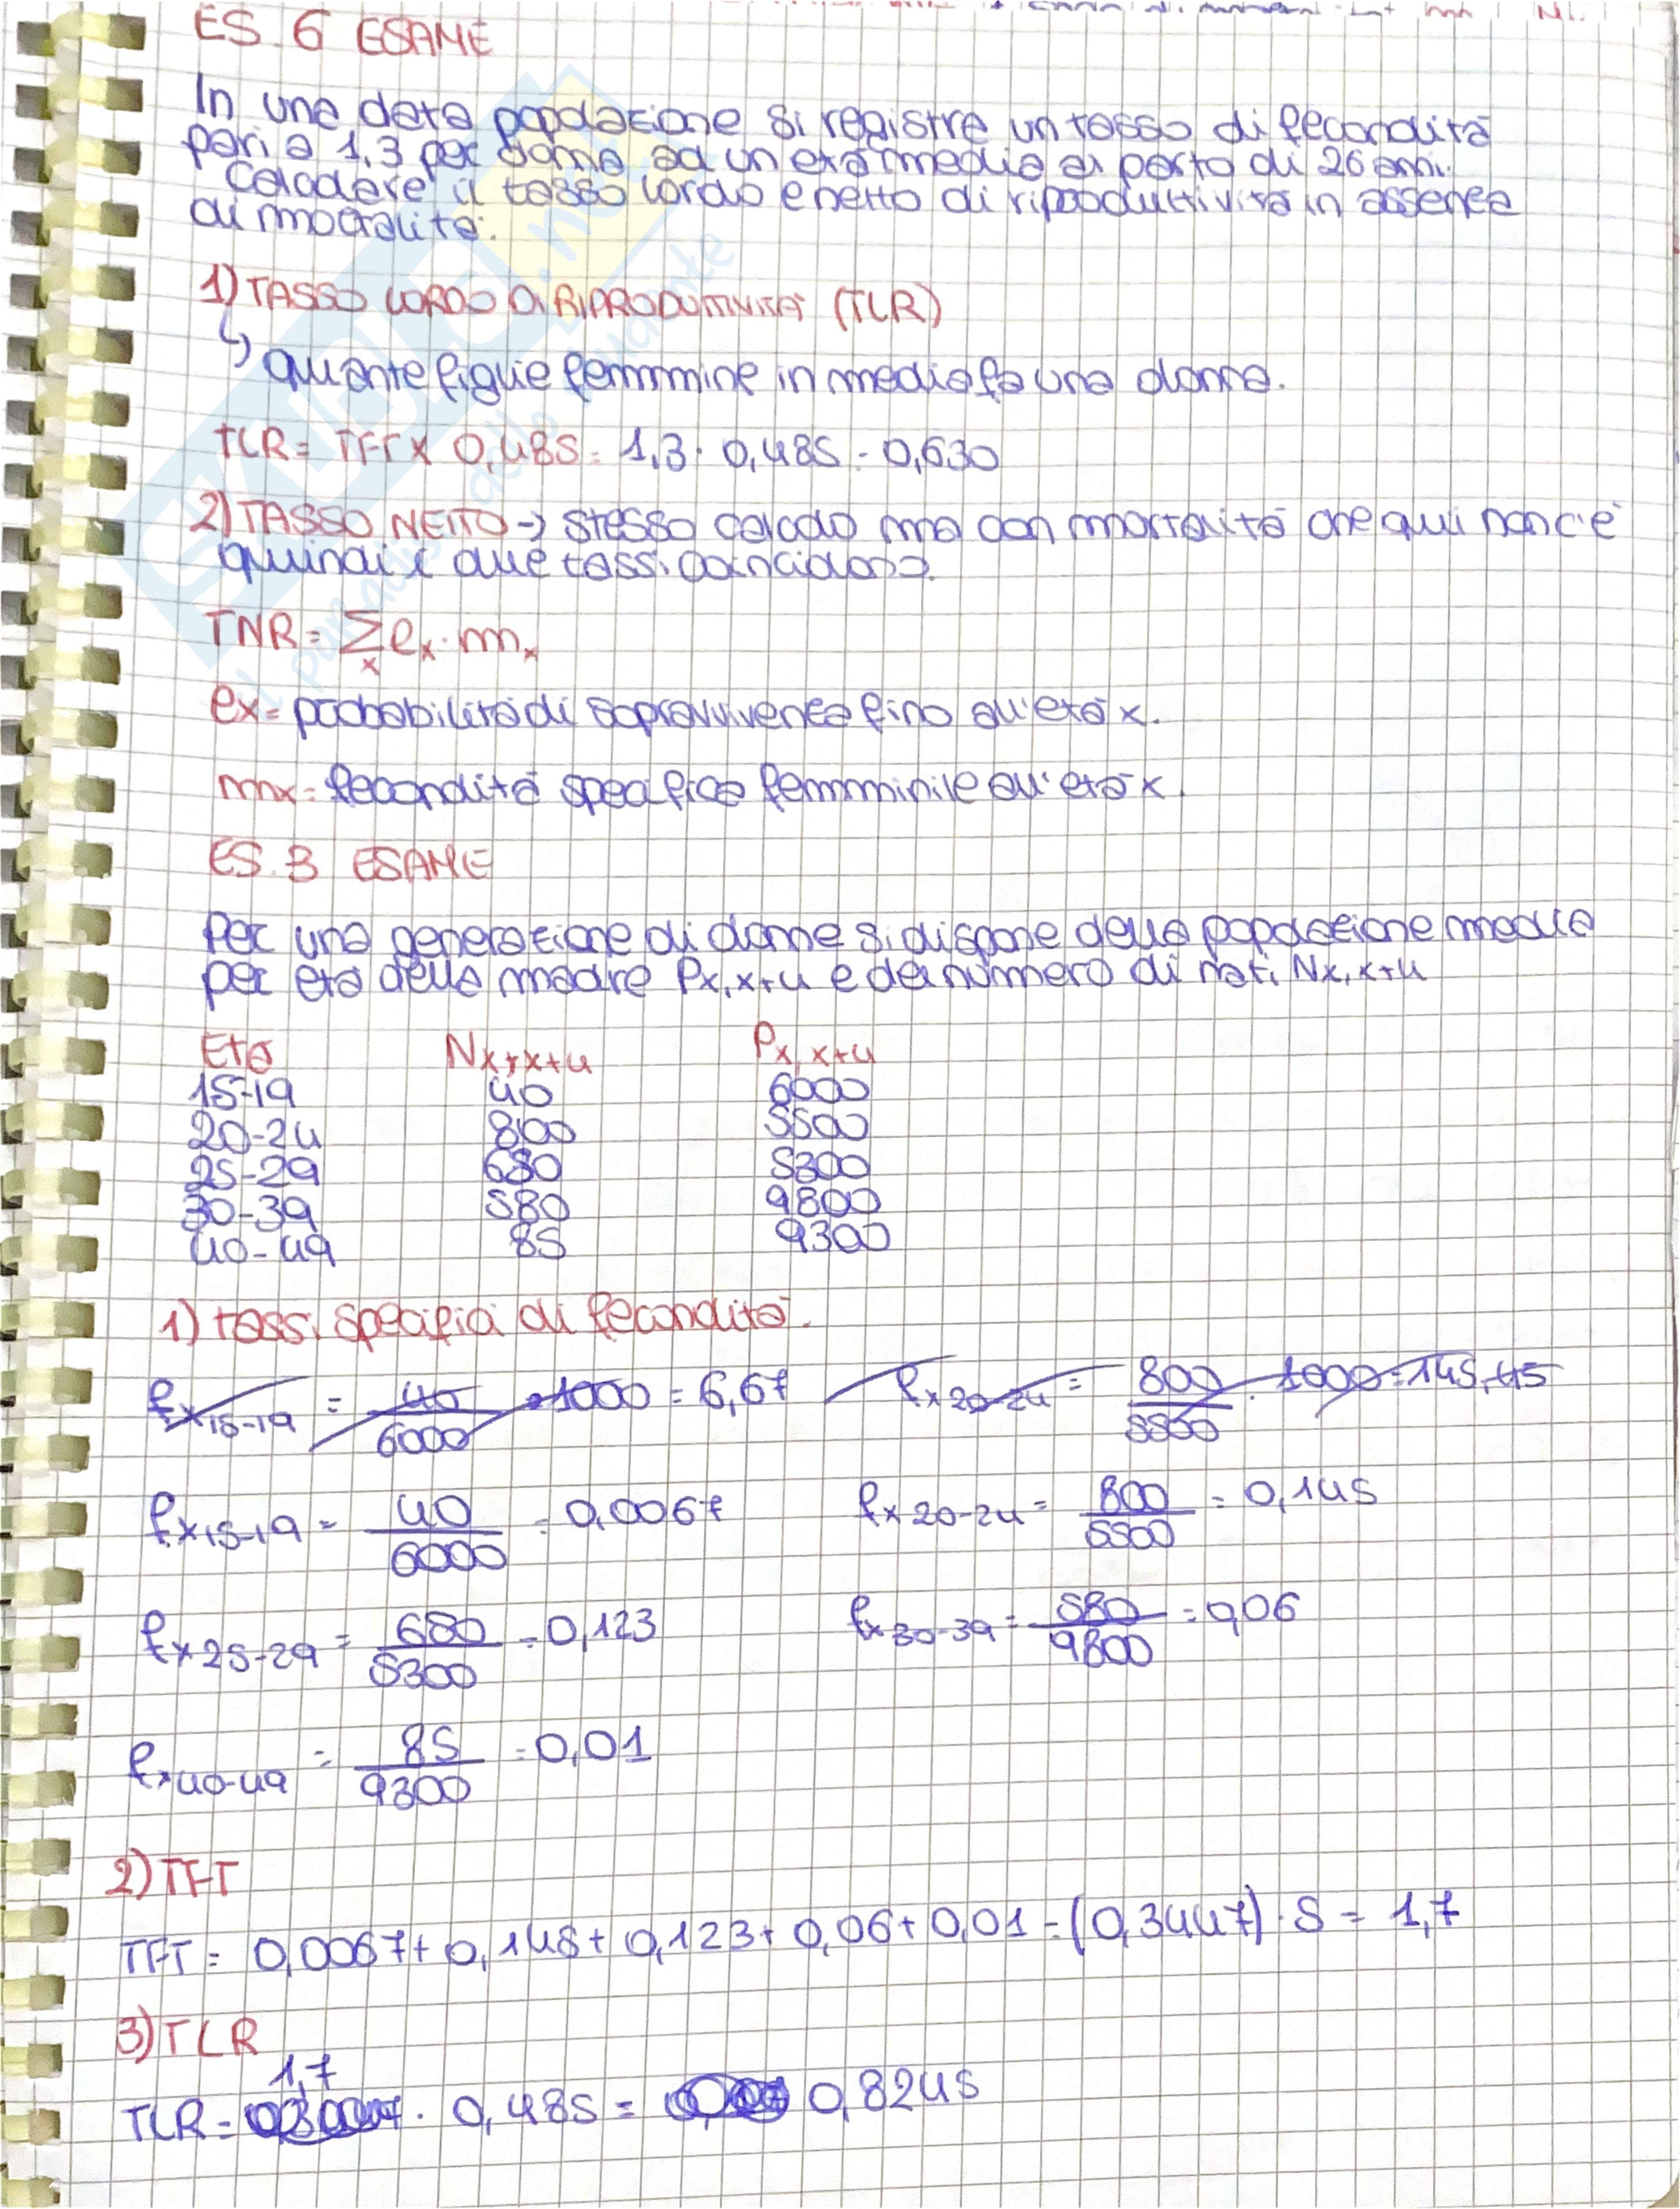 ES. 6 ESAME
In una data popolazione si registra un tasso di fecondità
pari a 1,3 per donna ad un'età media al parto di 26 anni.
Calcolare il tasso lordo e netto di riproduttività in assenza
di mortalità.
1) TASSO LORDO DI RIPRODUTTIVITÀ (TLR)
↳ quante figlie femmine in media fa una donna.
TLR = TFT x 0,485 = 1,3 · 0,485 = 0,630
2) TASSO NETTO → stesso calcolo ma con mortalità che qui non c'è
quindi i due tassi coincidono.
TNR = Σx ℓx · mx
ℓx = probabilità di sopravvivenza fino all'età x.
mx = fecondità specifica femminile all'età x.
ES. 3 ESAME
Per una generazione di donne si dispone della popolazione media
per età della madre Px,x+4 e del numero di nati Nx,x+4
Età Nx,x+4 Px,x+4
15-19 40 6000
20-24 800 5500
25-29 680 5300
30-39 580 9800
40-49 85 9300
1) tassi specifici di fecondità.
fx15-19 = 40/6000 · 1000 = 6,67 fx20-24 = 800/5500 · 1000 = 145,45
fx15-19 = 40/6000 = 0,0067 fx20-24 = 800/5500 = 0,145
fx25-29 = 680/5300 = 0,123 fx30-39 = 580/9800 = 0,06
fx40-49 = 85/9300 = 0,01
2) TFT
TFT = 0,0067 + 0,145 + 0,123 + 0,06 + 0,01 = (0,3447) · 5 = 1,7
3) TLR
TLR = 1,7 · 0,485 = 0,8245